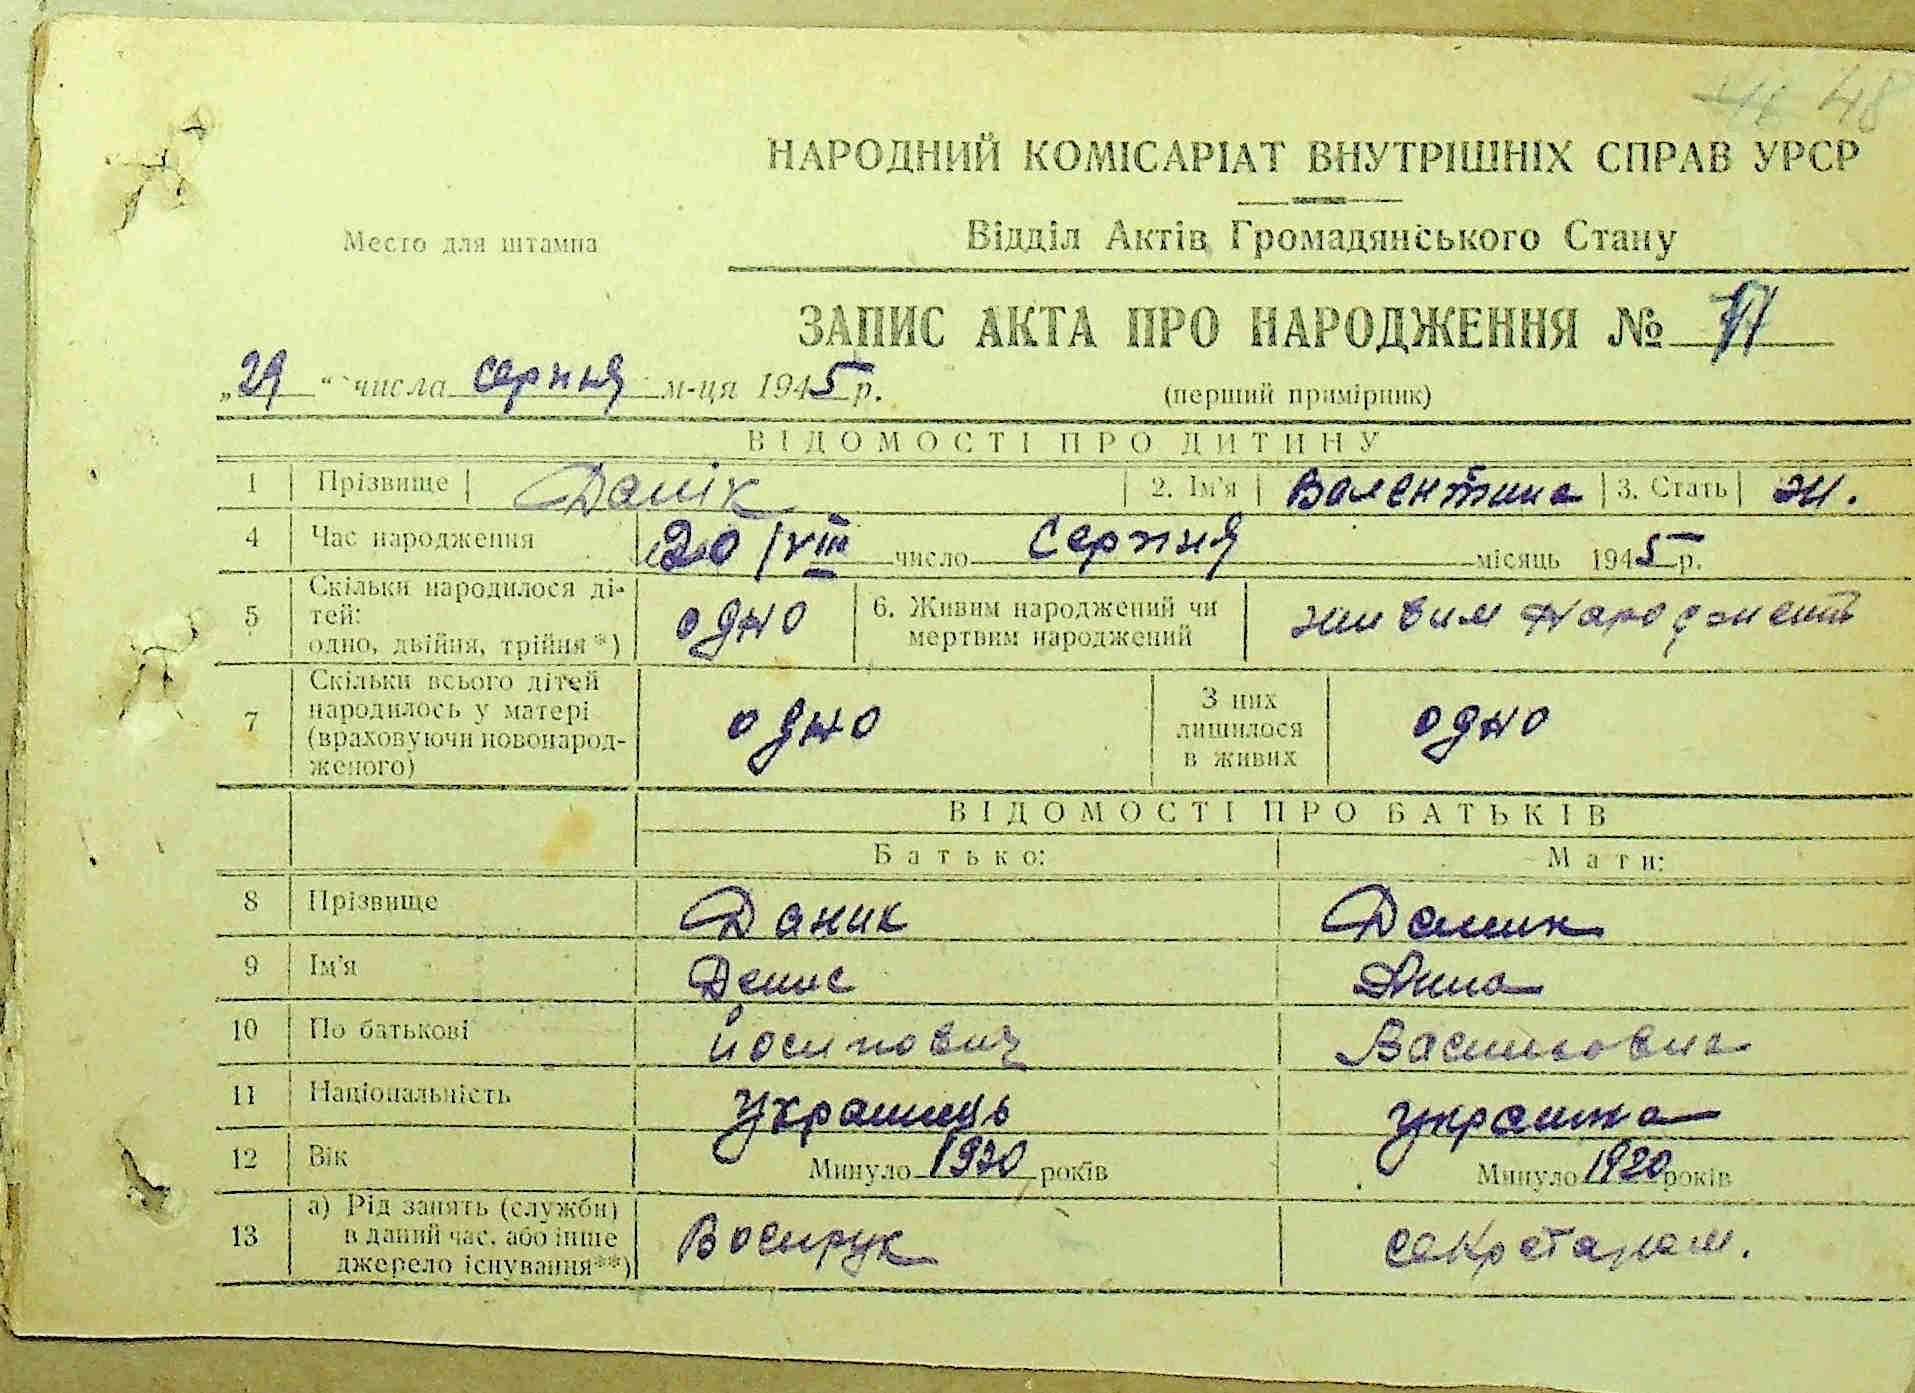 48
НАРОДНИЙ КОМІСАРІАТ ВНУТРІШНІХ СПРАВ УРСР
Место для штампа
Відділ Актів Громадянського Стану
ЗАПИС АКТА ПРО НАРОДЖЕННЯ №
„29“ числа серпня м-ця 1945 р.
(перший примірник)
ВІДОМОСТІ ПРО ДИТИНУ
1 Прізвище Данік 2. Ім'я Валентина 3. Стать ж.
4 Час народження 20/VIII число серпня місяць 1945 р.
5 Скільки народилося ді-
тей:
одно, двійня, трійня*) одно 6. Живим народжений чи
мертвим народжений живим народжений
7 Скільки всього дітей
народилось у матері
(враховуючи новонарод-
женого) одно З них
лишилося
в живих одно
ВІДОМОСТІ ПРО БАТЬКІВ
Батько: Мати:
8 Прізвище Даник Даник
9 Ім'я Денис Анна
10 По батькові Йосипович Васильовна
11 Національність Українець українка
12 Вік Минуло 1920 років Минуло 1920 років
13 а) Рід занять (служби)
в даний час, або інше
джерело існування**) Военрук секретарем.